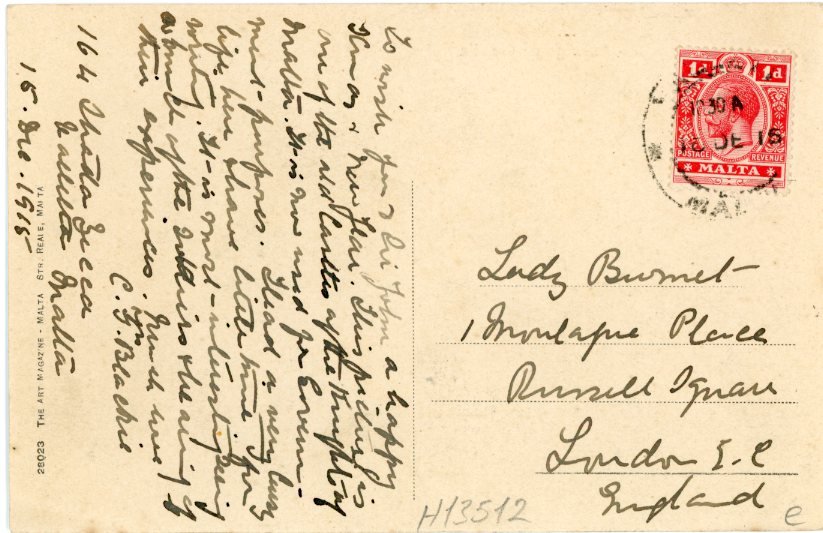 To wish you & Sir John a happy
Xmas & New Year. This picture is
one of the old Castles of the Knights of
Malta. It is now used for Govern-
ment purposes. I lead a very busy
life here & have little time for
writing. It is most interesting being
as much of the soldiers & hearing of
their experiences. Much love
C. G. Blackie
164 Strada Zecca
Valletta Malta
15. Dec. 1915
28023 THE ART MAGAZINE - MALTA STR. REALE, MALTA
1d 1d
POSTAGE REVENUE
MALTA
30 A
DE 15
MAL
Lady Burnet
1 Montague Place
Russell Square
London E.C
England
H13512
e